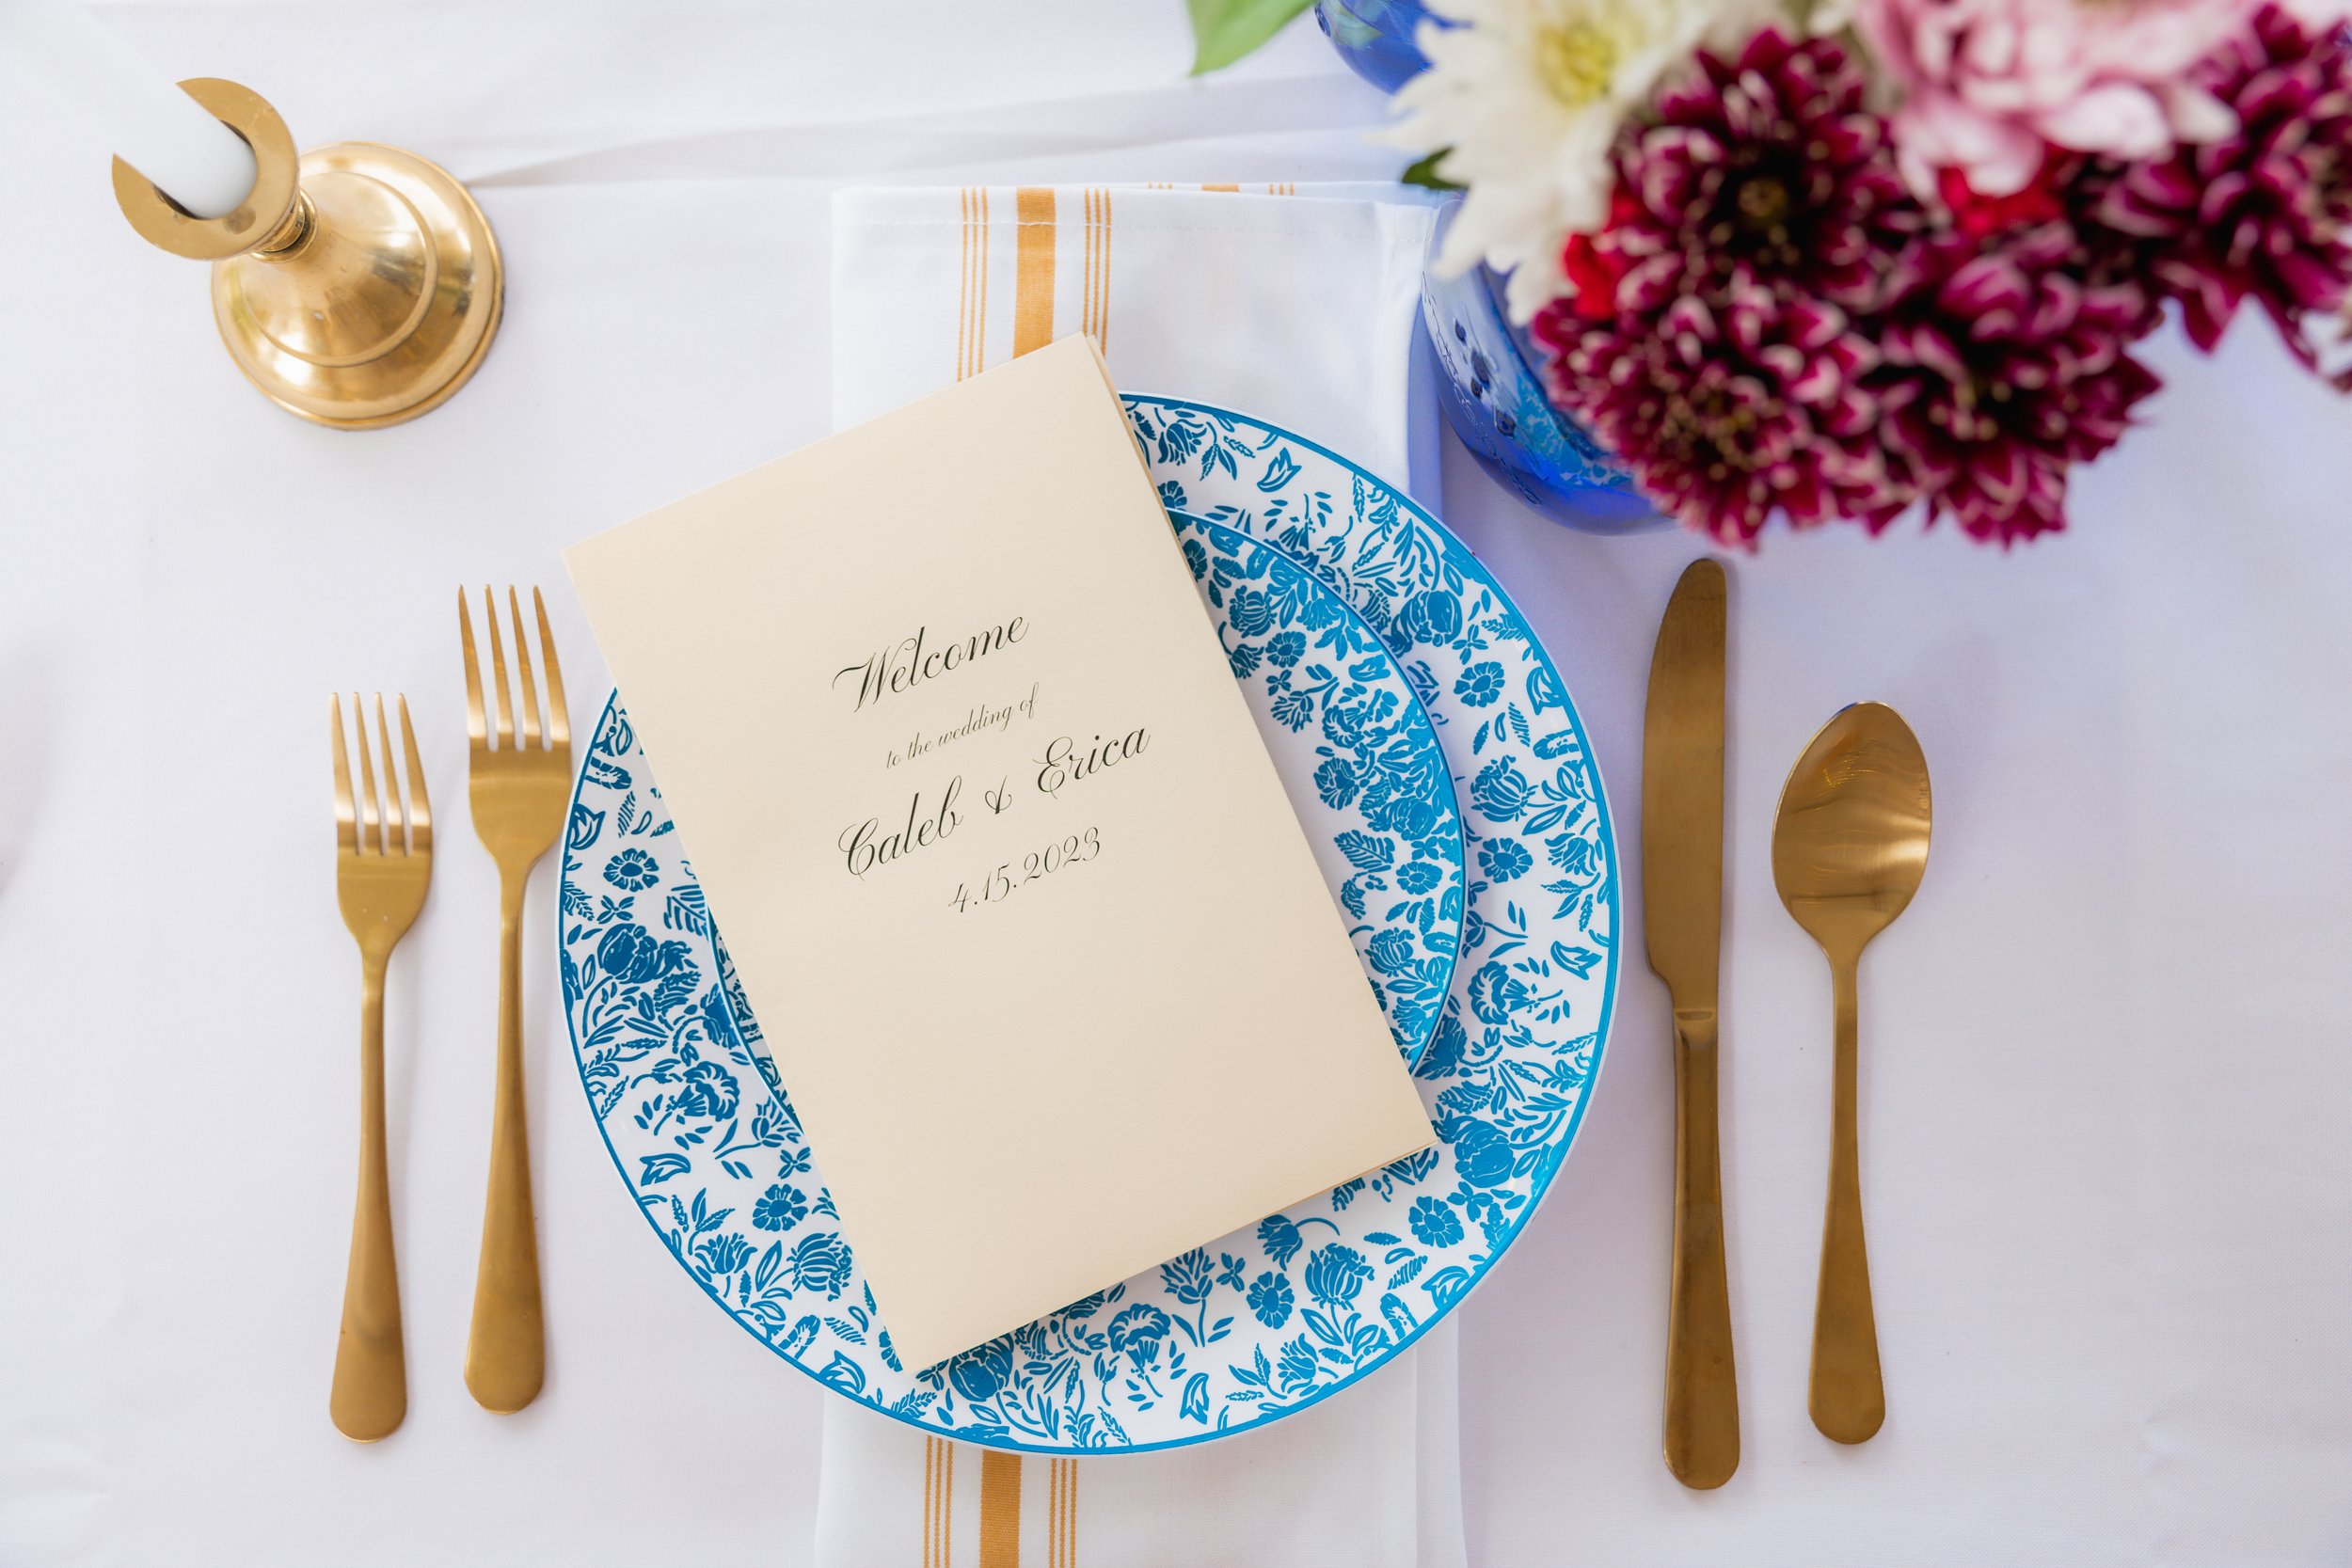 Welcome
to the wedding of
Caleb & Erica
4.15.2023